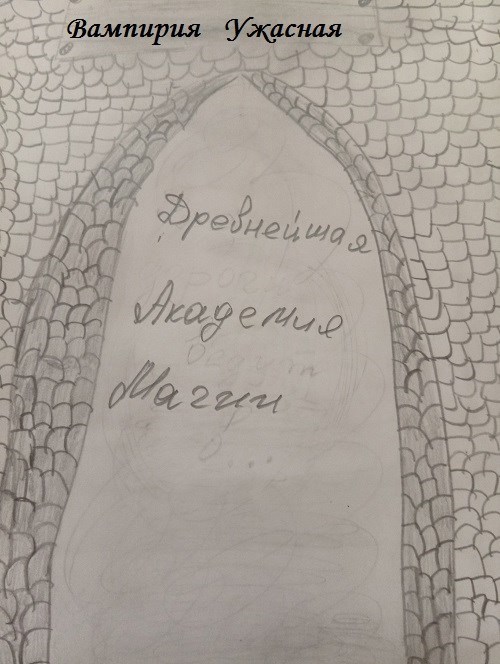 Вампирия Ужасная
Древнейшая
Академия
Магии